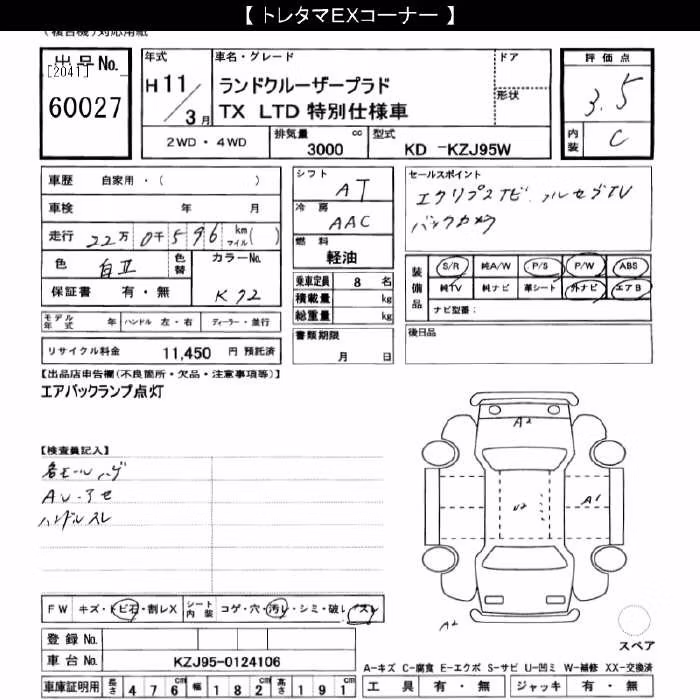 【 トレタマEXコーナー 】
(複合機)対応用紙
出品No.
[2041]
60027
年式
H 11/3月
車名・グレード
ランドクルーザープラド
TX LTD 特別仕様車
ドア
形状
評価点
3.5
内装 C
2WD・4WD
排気量 cc
3000
型式
KD -KZJ95W
車歴 自家用・( )
車検 年 月
走行 22万 0千 5 9 6 km マイル( )
色
色替
カラーNo.
K92
保証書 有・無
シフト
AT
冷房
AAC
燃料
軽油
乗車定員 8 名
積載量 kg
総重量 kg
セールスポイント
エクリプスナビ フルセグTV
バックカメラ
装備品
S/R 純A/W P/S P/W ABS
純TV 純ナビ 革シート 外ナビ エアB
ナビ型番:
モデル年式 年 ハンドル 左・右 ディーラー・並行
リサイクル料金 11,450 円 預託済
書類期限
月 日
後日品
【出品店申告欄(不良箇所・欠品・注意事項等)】
エアバックランプ点灯
【検査員記入】
各モールハゲ
AW・アセ
ハンドルスレ
A2
U2
A1
A2
FW キズ・トビ石・割レX
シート内装 コゲ・穴・汚レ・シミ・破レ・スレ
登録No.
車台No. KZJ95-0124106
スペア
A-キズ C-腐食 E-エクボ S-サビ U-凹ミ W-補修 XX-交換済
車庫証明用 長さ 476cm 幅 182cm 高さ 191cm
工具 有・無 ジャッキ 有・無